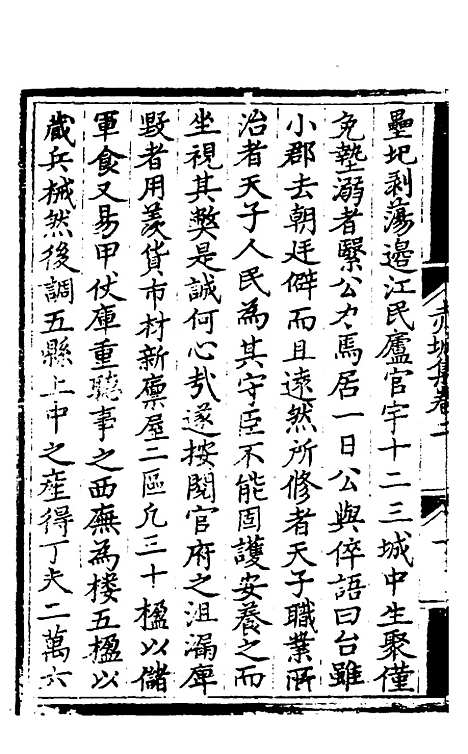 赤城集卷二
壘圮剥蕩邊江民廬官宇十二三城中生聚僅
免墊溺者繄公力焉居一日公與倅語曰台雖
小郡去朝廷僻而且遠然所修者天子職業所
治者天子人民為其守臣不能固護安養之而
坐視其弊是誠何心㢤遂按閱官府之沮漏庳
毀者用羨貨市材新廪屋二區凢三十楹以儲
軍食又易甲仗庫重聽事之西廡為楼五楹以
蔵兵械然後調五縣上中之産得丁夫二萬六